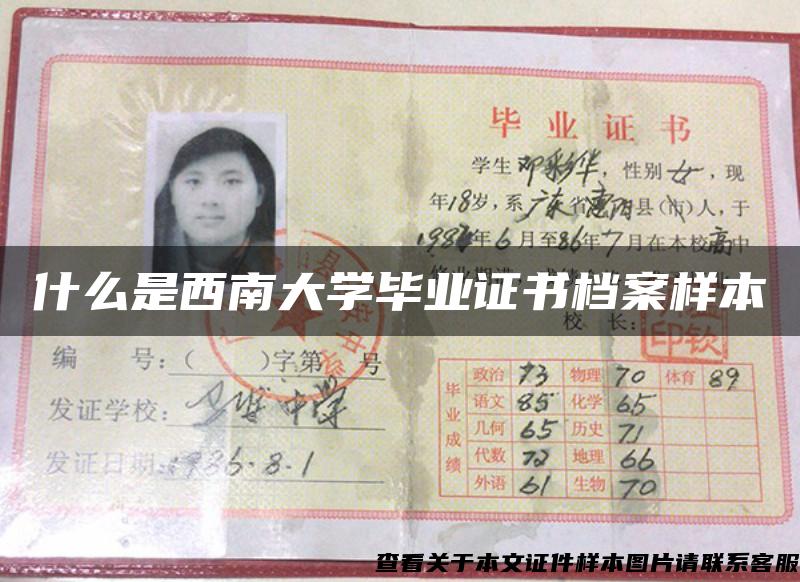 毕业证书
学生邓彩华，性别女，现
年18岁，系广东省惠阳县(市)人，于
1983年6月至86年7月在本校高中
什么是西南大学毕业证书档案样本
校 长：
编 号：( )字第 号
发证学校：
发证日期：1986.8.1
毕业成绩
政治 73 物理 70 体育 89
语文 85 化学 65
几何 65 历史 71
代数 72 地理 66
外语 61 生物 70
查看关于本文证件样本图片请联系客服